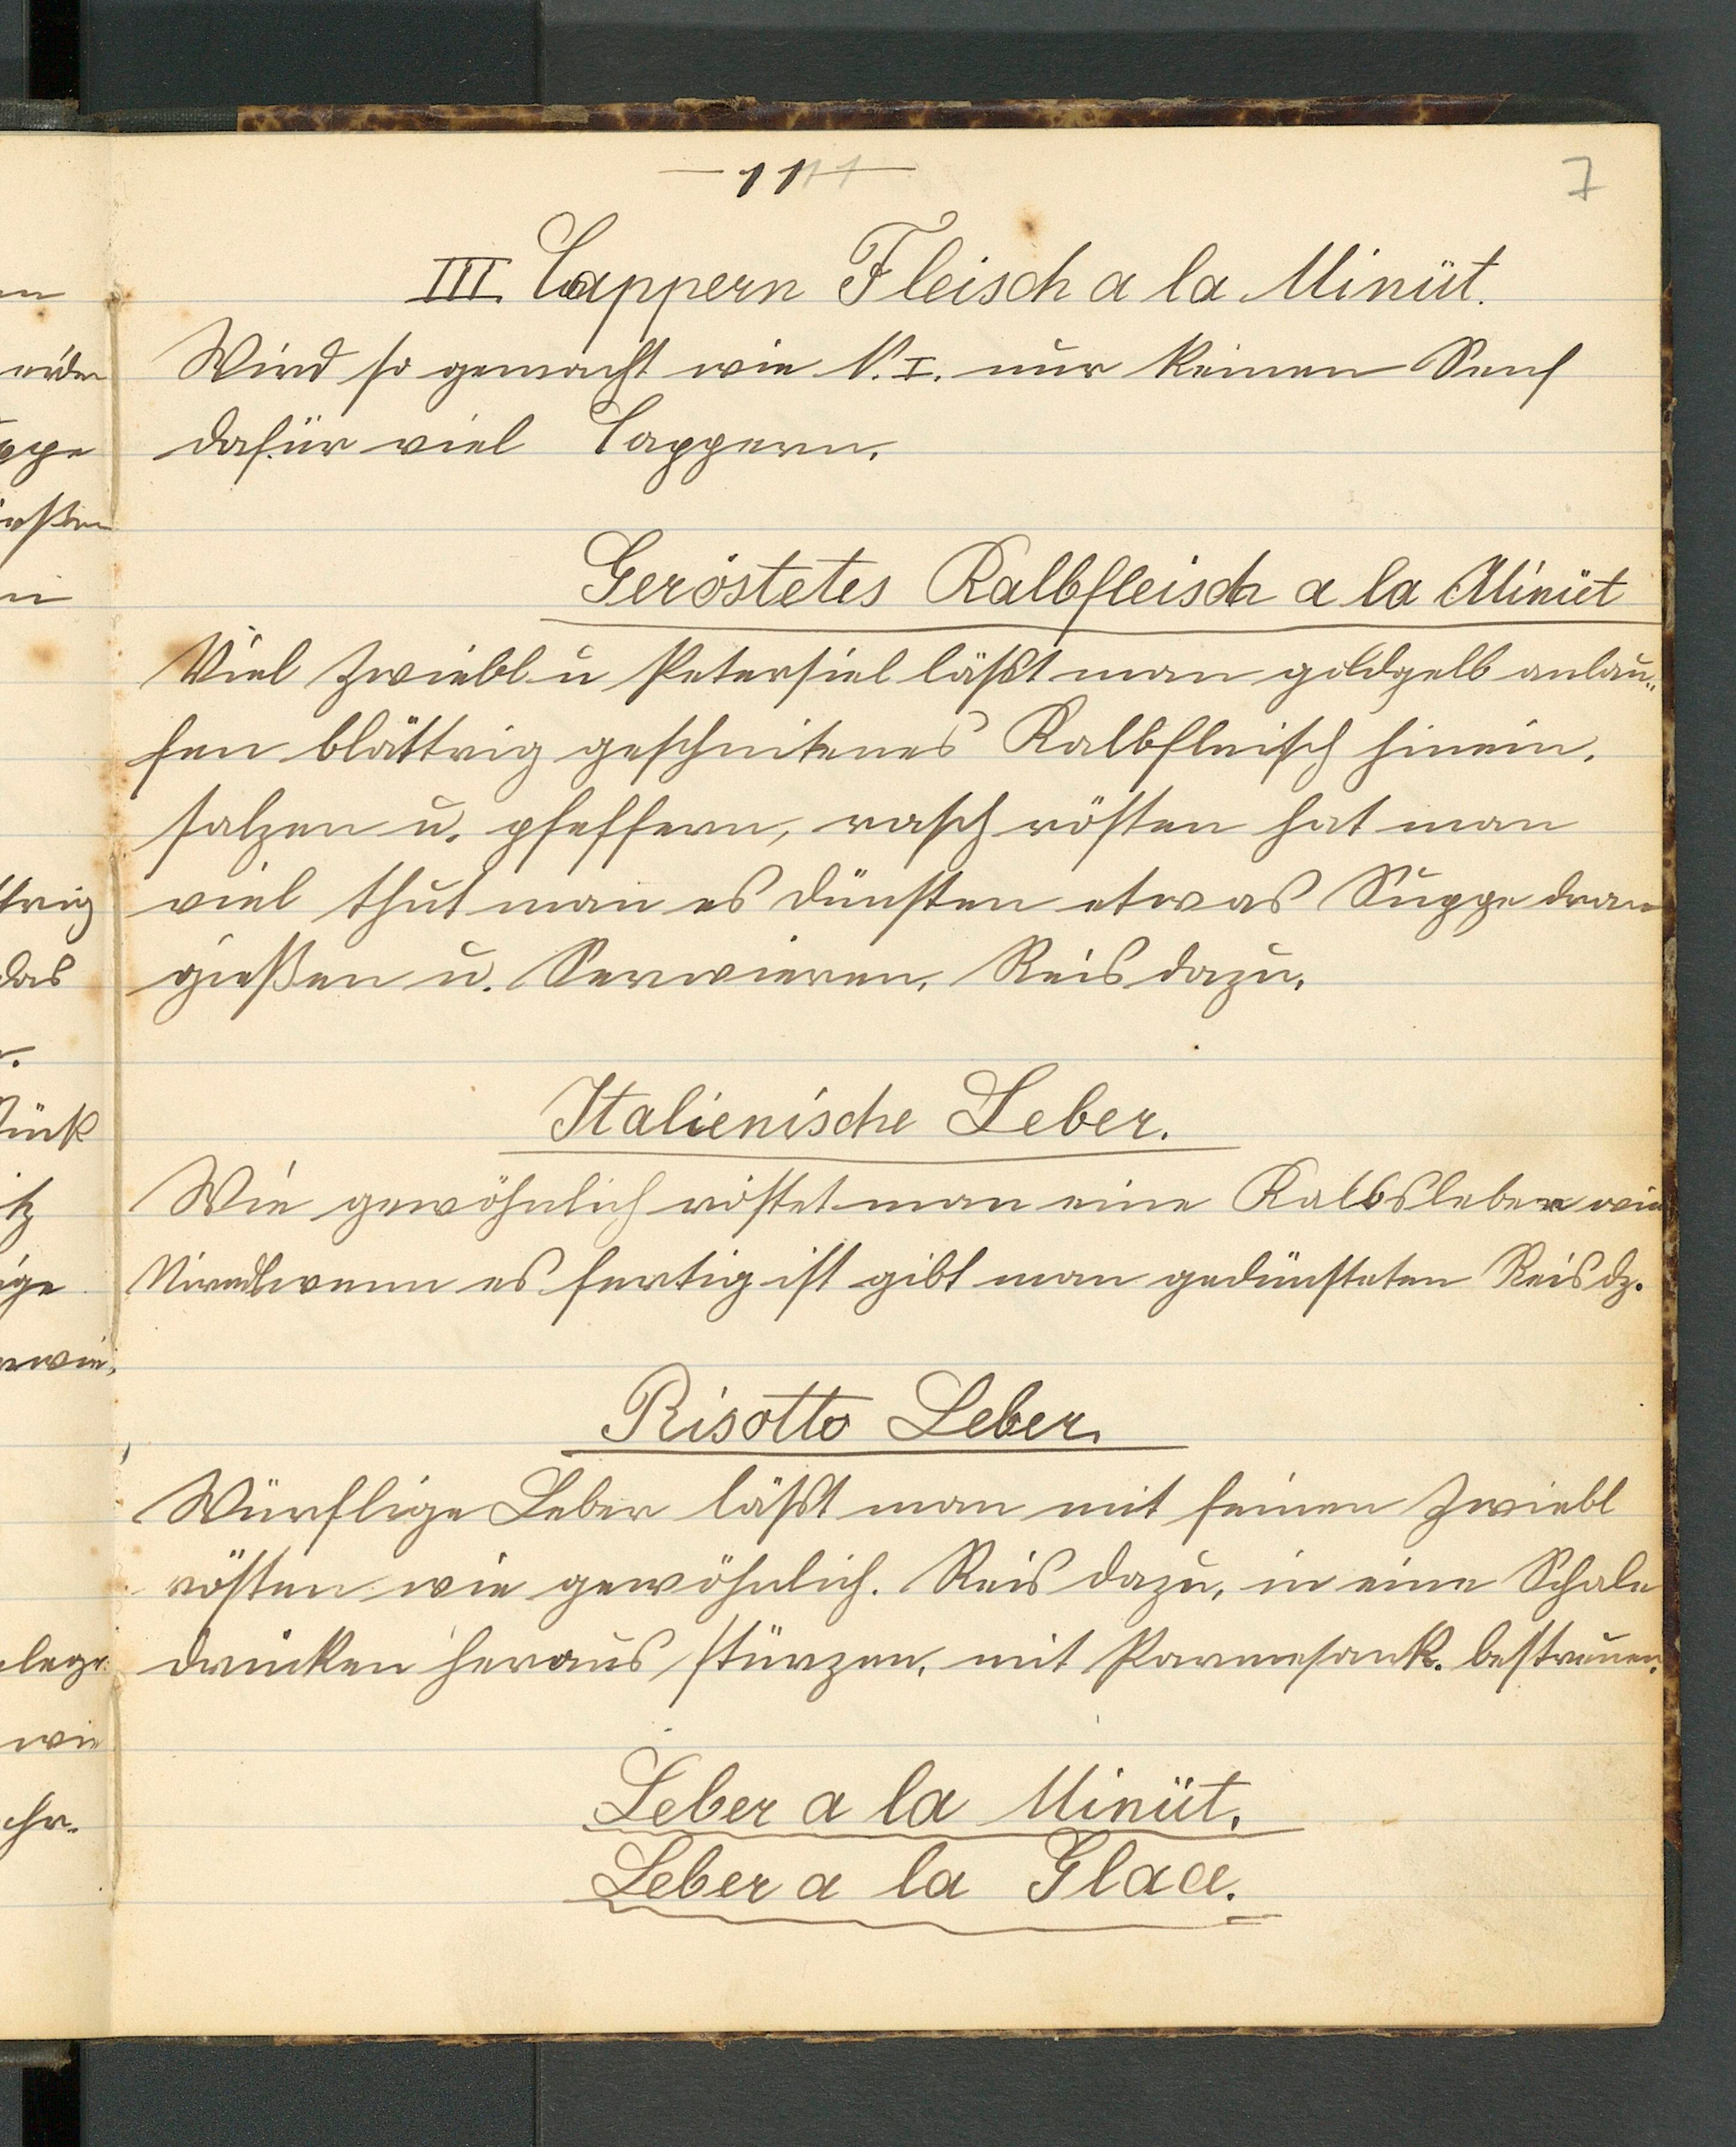 — 11 11 —
7
III. Cappern Fleisch a la Minüt.
Wird so gemacht wie N. I. nur keinen Senf
dafür viel Cappern.
Geröstetes Kalbfleisch a la Minüt
Viel Zwiebl u Petersiel läßt man goldgelb anlau„
fen blättrig geschnitenes Kalbfleisch hinein.
salzen u. pfeffern, rasch rösten hat man
viel thut man es dünsten etwas Suppe dran
gießen u. Serwieren. Reis dazu.
Italienische Leber.
Wie gewöhnlich röstet man eine Kalbsleber wie
wenn es fertig ist gibt man gedünsteten Reis dz.
Risotto Leber.
Würflige Leber läßt man mit feinen Zwiebl
rösten wie gewöhnlich. Reis dazu, in eine Schale
drücken heraus stürzen, mit Parmesank. bestreuen.
Leber a la Minüt.
Leber a la Glace.